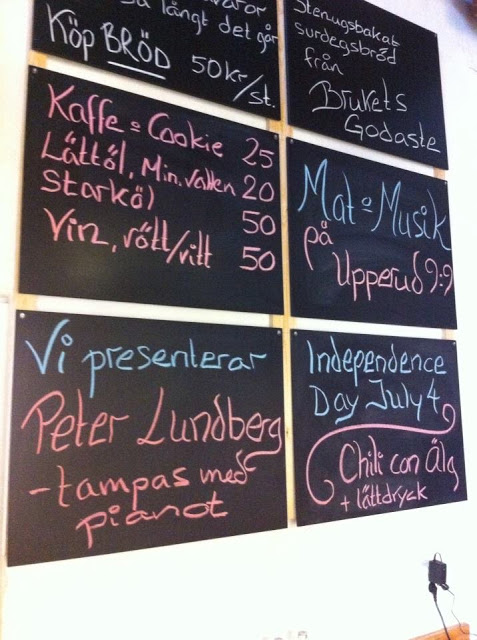 så långt det går
Köp BRÖD 50kr/st.
Stenugsbakat
surdegsbröd
från
Brukets
Godaste
Kaffe o Cookie 25
Lättöl, Min.vatten 20
Starköl 50
Vin, rött/vitt 50
Mat o Musik
på
Upperud 9:9
Vi presenterar
Peter Lundberg
-tampas med
pianot
Independence
Day July 4
Chili con Älg
+ lättdryck